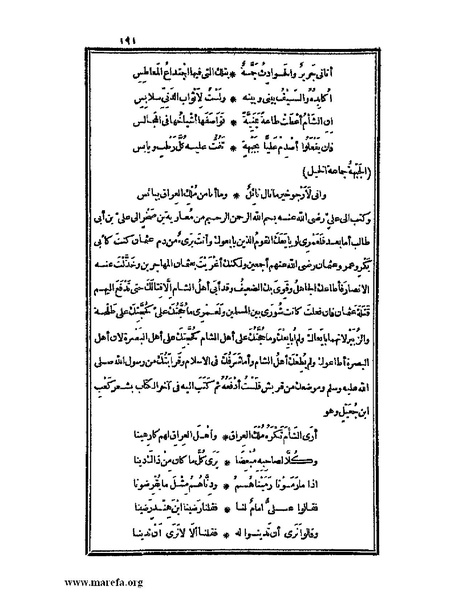 ١٩١
أتاني جرير والحوادث جمة * بتلك التي فيها اجتداع المعاطس
أكابده والسيف بيني وبينه * ولست لأثواب الدني بلابس
ان الشأم أعطت طاعة يمنية * تواصفها أشياخها في المجالس
فان يفعلوا أصدم عليا بجبهة * تفت عليه كل رطب ويابس
(الجبهة جماعة الخيل)
واني لأرجو خير ما نال نائل * وما أنا من ملك العراق بيائس
وكتب الى علي رضى الله عنه بسم الله الرحمن الرحيم من معاوية بن صخر الى علي بن أبي
طالب أما بعد فلعمري لو بايعك القوم الذين بايعوك وأنت بريء من دم عثمان كنت كأبي
بكر وعمر وعثمان رضى الله عنهم أجمعين ولكنك أغريت بعثمان المهاجرين وخذلت عنه
الانصار فأطاعك الجاهل وقوي بك الضعيف وقد أبى أهل الشأم الا قتالك حتى تدفع اليهم
قتلة عثمان فان فعلت كانت شورى بين المسلمين ولعمري ما حجتك علي كحجتك على طلحة
والزبير لانهما بايعاك ولم أبايعك وما حجتك على أهل الشام كحجتك على أهل البصرة لان أهل
البصرة أطاعوك ولم يطعك أهل الشام وأما شرفك في الاسلام وقرابتك من رسول الله صلى
الله عليه وسلم وموضعك من قريش فلست أدفعه ثم كتب اليه في آخر الكتاب بشعر كعب
ابن جعيل وهو
أرى الشأم تكره ملك العراق * وأهل العراق لهم كارهينا
وكلا لصاحبه مبغضا * يرى كل ما كان من ذاك دينا
اذا ما رمونا رميناهم * ودناهم مثل ما يقرضونا
فقالوا علي امام لنا * فقلنا رضينا ابن هند رضينا
وقالوا نرى أن تدينوا له * فقلنا ألا لا نرى أن ندينا
www.marefa.org